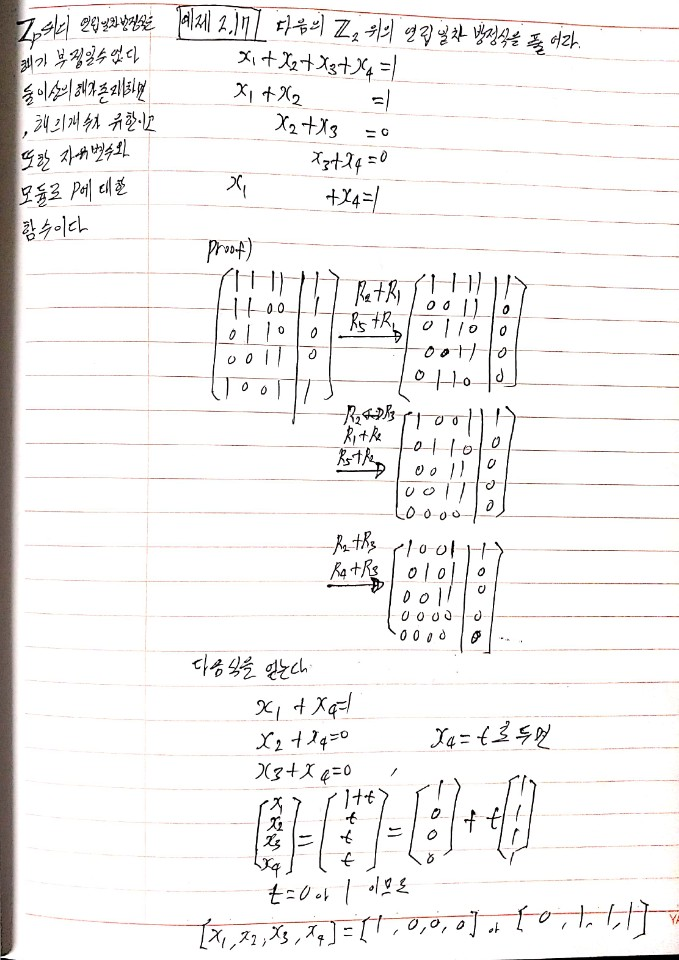 Zp위의 연립일차방정식은
해가 부정일수없다
둘이상의 해가 존재하면
, 해의개수가 유한이고
또한 자유변수와
모듈로 P에 대한
함수이다
예제 2.17 다음의 Z₂ 위의 연립일차 방정식을 풀어라.
x₁+x₂+x₃+x₄=1
x₁+x₂ =1
x₂+x₃ =0
x₃+x₄=0
x₁ +x₄=1
proof)
1 1 1 1 | 1
1 1 0 0 | 1
0 1 1 0 | 0
0 0 1 1 | 0
1 0 0 1 | 1
R₂+R₁
R₅+R₁
1 1 1 1 | 1
0 0 1 1 | 0
0 1 1 0 | 0
0 0 1 1 | 0
0 1 1 0 | 0
R₂↔R₃
R₁+R₂
R₅+R₂
1 0 0 1 | 1
0 1 1 0 | 0
0 0 1 1 | 0
0 0 1 1 | 0
0 0 0 0 | 0
R₂+R₃
R₄+R₃
1 0 0 1 | 1
0 1 0 1 | 0
0 0 1 1 | 0
0 0 0 0 | 0
0 0 0 0 | 0 ...
다음식을 얻는다
x₁ + x₄=1
x₂ + x₄=0 x₄=t로 두면
x₃+x₄=0 ,
[x₁ x₂ x₃ x₄] = [1+t t t t] = [1 0 0 0] + t[1 1 1 1]
t=0 or 1 이므로
[x₁, x₂, x₃, x₄]=[1, 0, 0, 0] or [0, 1, 1, 1]